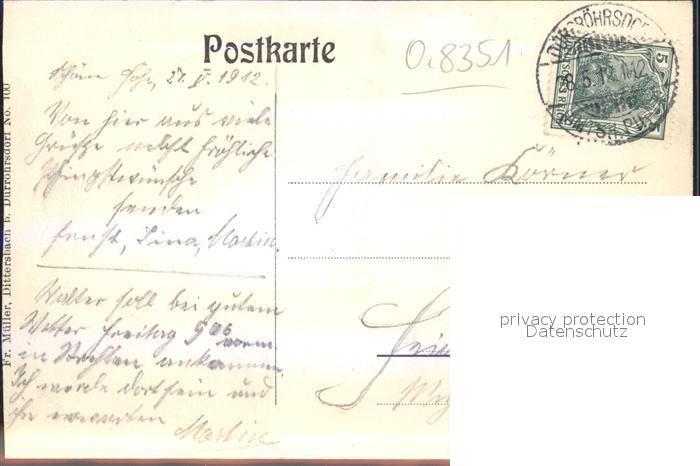 Postkarte
0.8351
Schöne Höhe, 27. V. 1912.
Von hier aus viele
Grüße nebst fröhliche
Pfingstwünsche
senden
Ernst, Lina, Martin.
Walter soll bei gutem
Wetter Freitag 5 vorm.
in ankommen.
Ich werde dort sein und
ihn erwarten
Martin
Familie Körner
Fr. Müller, Dittersbach b. Dürröhrsdorf No. 100
DÜRRRÖHRSDORF
5
privacy protection
Datenschutz